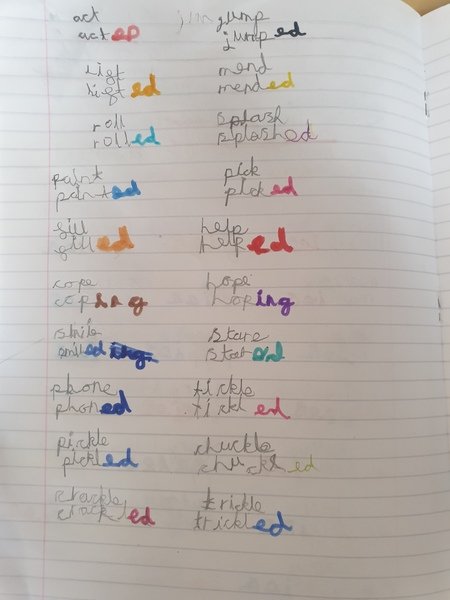 act jump
acted jumped
lift mend
lifted mended
roll splash
rolled splashed
paint pick
painted picked
fill help
filled helped
cope hope
coping hoping
smile stare
smiled stared
phone tickle
phoned tickled
pickle chuckle
pickled chuckled
crackle trickle
crackled trickled